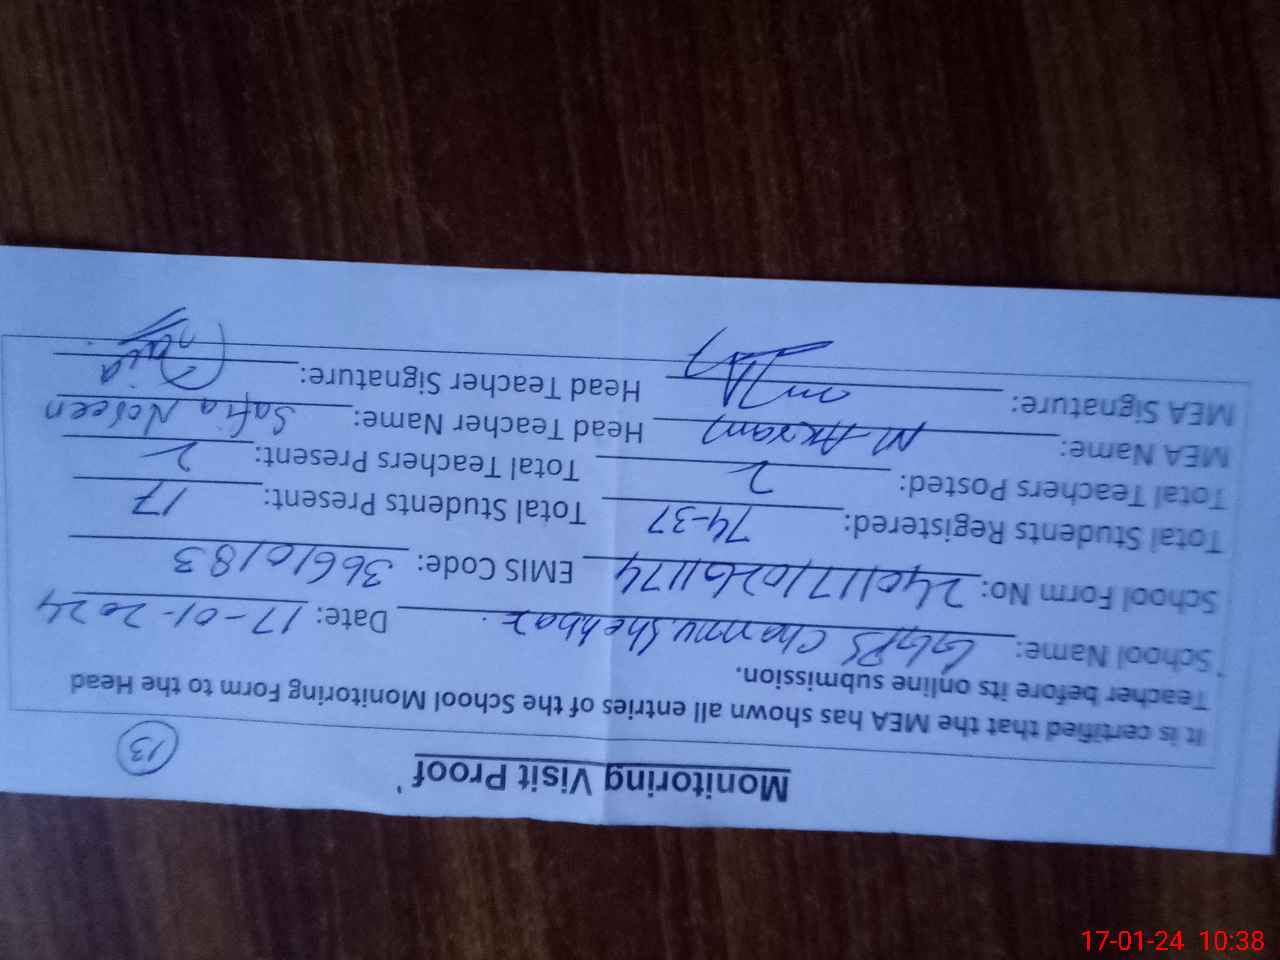 Monitoring Visit Proof
13
It is certified that the MEA has shown all entries of the School Monitoring Form to the Head
Teacher before its online submission.
School Name: GGPS Channu Shehbaz. Date: 17-01-2024
School Form No: 240117102611174 EMIS Code: 36610183
Total Students Registered: 74-37 Total Students Present: 17
Total Teachers Posted: 2 Total Teachers Present: 2
MEA Name: M. Akram Head Teacher Name: Safia Noreen
MEA Signature: Head Teacher Signature:
17-01-24 10:38